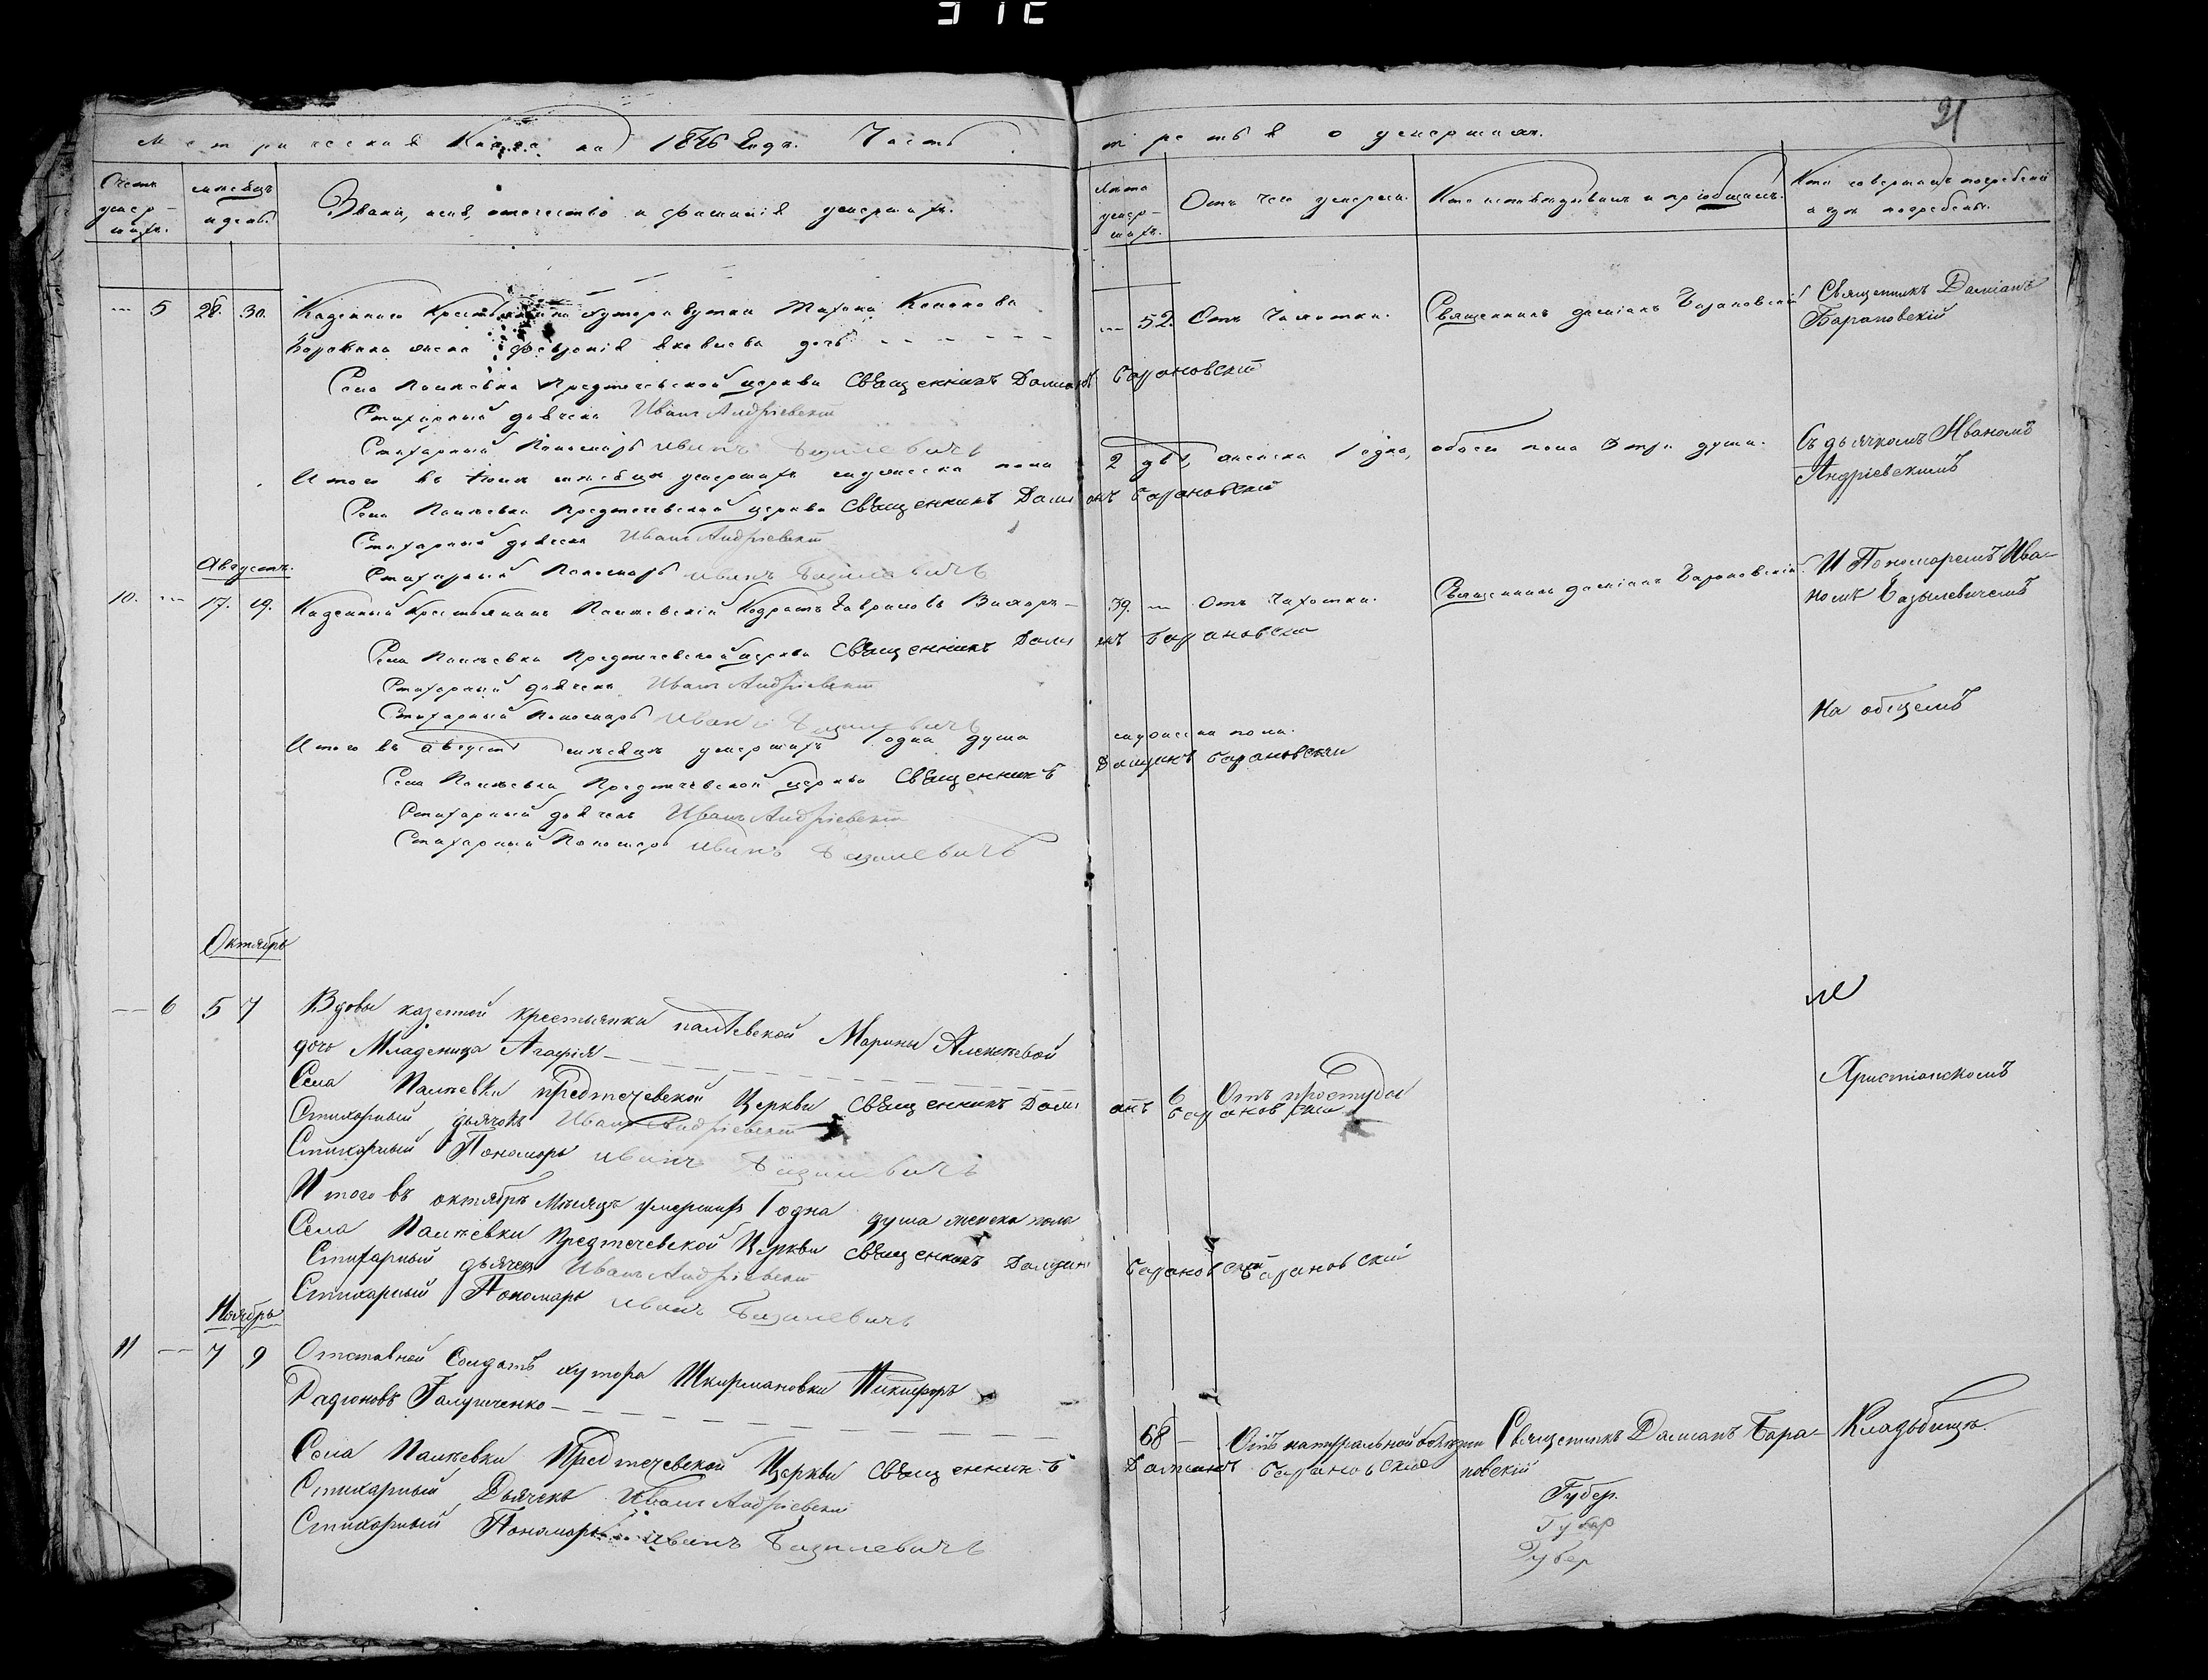 312
Метрическая Книга на 1846 Годъ. Часть
третья о умершихъ.
91
Счетъ умер-шихъ.
мѣсяцъ и день.
Званіе, имя, отечество и фамилія умершихъ.
Лѣта умер-шихъ.
Отъ чего умерли.
Кто исповѣдывалъ и пріобщалъ.
Кто совершалъ погребеніе и гдѣ погребены.
— 5 28. 30. Казеннаго Крестьянина хутора
жена Яковлева дочь
— 52. Отъ Чахотки. Священникъ Даміанъ Барановскій
Священникъ Даміанъ
Барановскій
Села Паліевки Предтечевской церкви Священникъ Даміанъ Барановскій
Стихарный дьячекъ Иванъ Андріевскій
Стихарный Пономарь Иванъ Базилевичъ
Итого въ Іюлѣ мѣсяцѣ умершихъ мужеска пола 2 двѣ, женска 1 одна, обоего пола 3 три души.
Съ дьячкомъ Иваномъ
Андріевскимъ
Села Паліевки Предтечевской церкви Священникъ Даміанъ Барановскій
Стихарный дьячекъ Иванъ Андріевскій
Августъ.
Стихарный Пономарь Иванъ Базилевичъ
И Пономаремъ Ива-
номъ Базылевичемъ
10. — 17. 19. Казенный крестьянинъ Паліевскій Кодратъ Гавриловъ
39. — Отъ Чахотки. Священникъ Даміанъ Барановскій.
Села Паліевки Предтечевской церкви Священникъ Даміанъ Барановскій
Стихарный дьячекъ Иванъ Андріевскій
Стихарный Пономарь Иванъ Базилевичъ
На общемъ
Итого въ августѣ мѣсяцѣ умершихъ 1 одна душа мужеска пола.
Села Паліевки Предтечевской церкви Священникъ Даміанъ Барановскій
Стихарный дьячекъ Иванъ Андріевскій
Стихарный Пономарь Иванъ Базилевичъ
Октябрь
— 6 5 7 Вдовы казенной крестьянки паліевской Марины Алексѣевой
дочь Младеница Агафія
6 Отъ простуды
Христіанскомъ
Села Паліевки Предтечевской Церкви Священникъ Даміанъ Барановскій
Стихарный дьячокъ Иванъ Андріевскій
Стихарный Пономарь Иванъ Базилевичъ
Итого въ октябрѣ Мѣсяцѣ умершихъ 1 одна душа женска пола
Села Паліевки Предтечевской Церкви Священникъ Даміанъ Барановскій Барановскій
Стихарный дьячекъ Иванъ Андріевскій
Стихарный Пономарь Иванъ Базилевичъ
Ноябрь
11 — 7 9 Отставной Солдатъ хутора Шкирмановки Никифоръ
Радіоновъ Галушченко
68 — Отъ натуральной болѣзни Священникъ Даміанъ Бара-
новскій
Кладбищѣ.
Села Паліевки Предтечевской Церкви Священникъ Даміанъ Барановскій
Стихарный Дьячекъ Иванъ Андріевскій
Стихарный Пономарь Иванъ Базилевичъ
Губер.
Губер
Губер